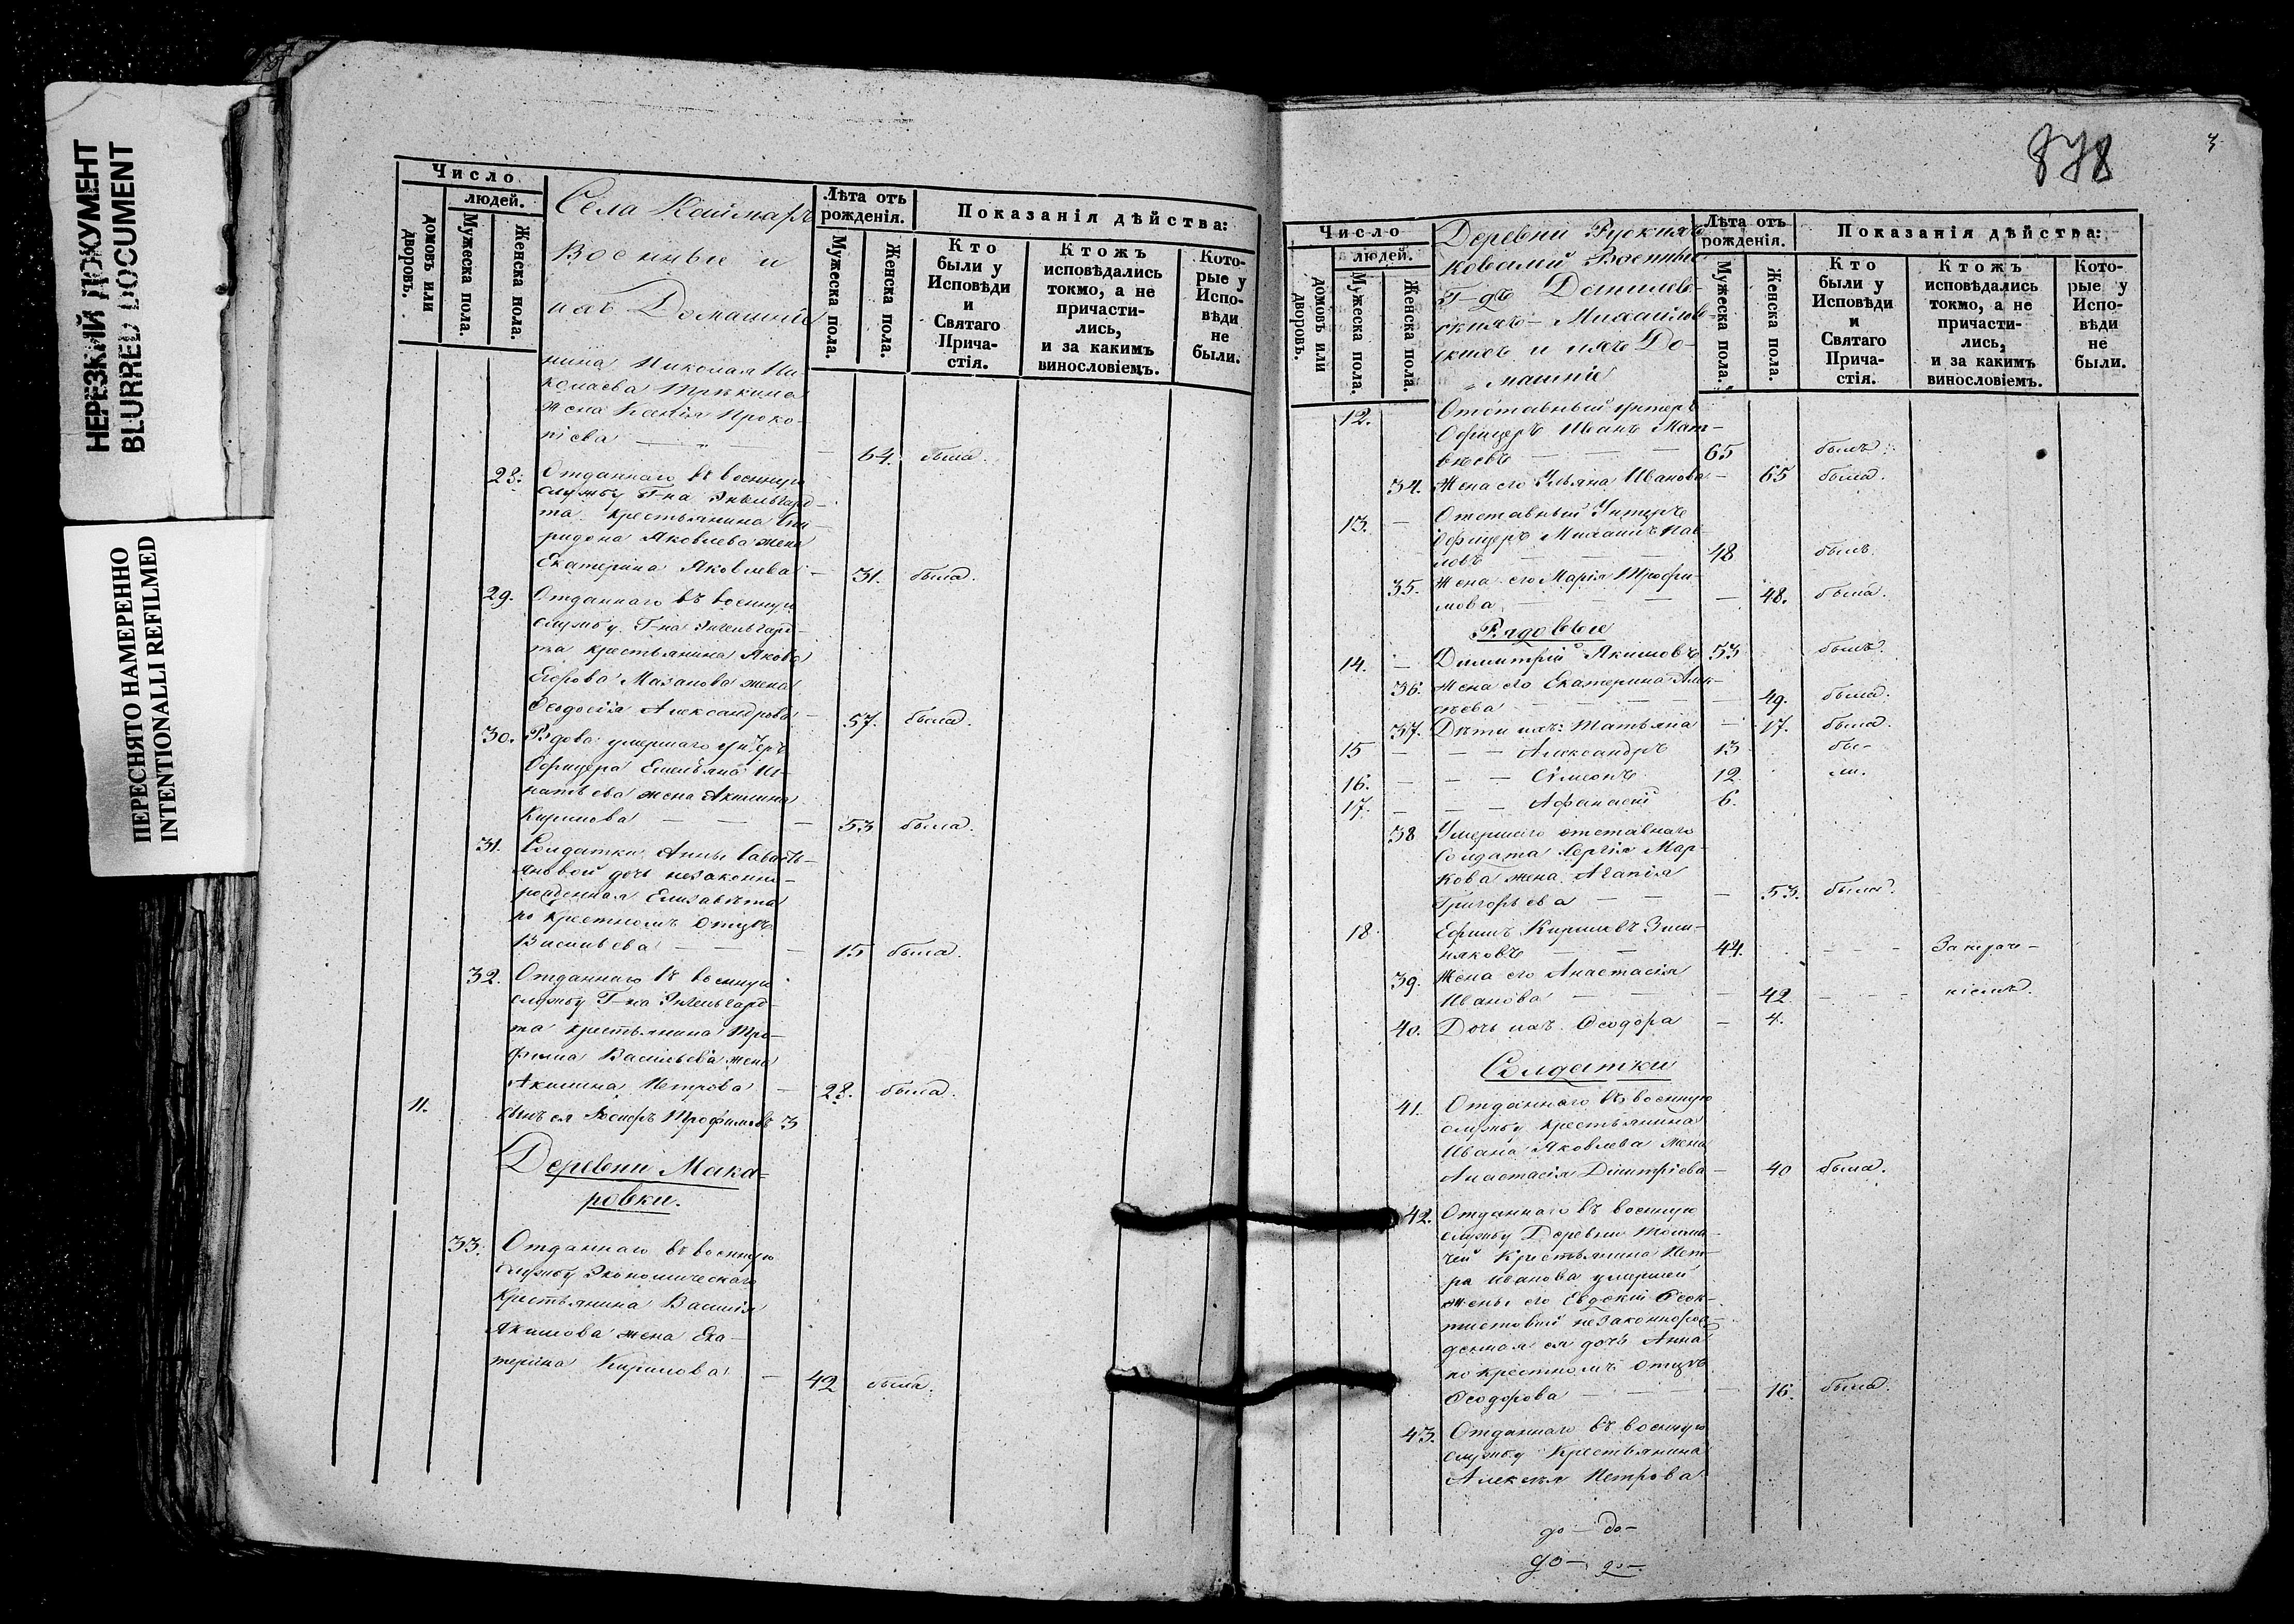 НЕРЕЗКИЙ ДОКУМЕНТ
BLURRED DOCUMENT
ПЕРЕСНЯТО НАМЕРЕННО
INTENTIONALLI REFILMED
Число
людей.
домовъ или дворовъ.
Мужеска пола.
Женска пола.
Села Каймаръ
Военные и
ихъ Домашніе
Лѣта отъ рожденія.
Мужеска пола.
Женска пола.
Показанія дѣйства:
Кто были у Исповѣди и Святаго Прича-стія.
Ктожъ исповѣдались токмо, а не причасти-лись, и за какимъ винословіемъ.
Кото-рые у Испо-вѣди не были.
нина Николая Ни-
колаева
жена Проко-
піева — 64. была.
28. Отданнаго въ военную
службу Г-на Энгельгард-
та крестьянина Спи-
ридона Яковлева жена
Екатерина Яковлева — 31. была.
29. Отданнаго въ военную
службу Г-на Энгельгард-
та крестьянина Якова
Егорова Мазанова жена
Ѳеодосія Александрова — 57. была.
30. Вдова умершаго унтеръ
Офицера Емельяна Иг-
натьева жена Акилина
Кирилова — — — 53 была.
31. Солдатки Анны Савасть-
яновой дочь незаконно-
рожденная Елизавета
по крестномъ отцѣ
Васильева — — 15 была.
32. Отданнаго въ военную
службу Г-на Энгельгард-
та крестьянина Тро-
фима Васильева жена
Акилина Петрова — 28. была.
11. сынъ ея Трофимовъ 3
Деревни Мака-
ровки.
33. Отданнаго въ военную
службу Экономическаго
Крестьянина Василія
Якимова жена Ека-
терина Кирилова — 42 была.
878
3
Число
людей.
домовъ или дворовъ.
Мужеска пола.
Женска пола.
Деревни Рускихъ
Ковалей Военные
Г-дъ Данилов-
скихъ — Михайлов-
скихъ и ихъ До-
машніе
Лѣта отъ рожденія.
Мужеска пола.
Женска пола.
Показанія дѣйства:
Кто были у Исповѣди и Святаго Прича-стія.
Ктожъ исповѣдались токмо, а не причасти-лись, и за какимъ винословіемъ.
Кото-рые у Испо-вѣди не были.
12. Отставный унтеръ
Офицеръ Иванъ Мат-
вѣевъ — — — 65 былъ.
34. Жена его Ульяна Иванова — 65 была.
13. — Отставный Унтеръ
Офицеръ Михаилъ Пав-
ловъ — — — 48 былъ.
35. Жена его Марія Трофи-
мова — — — — 48. была.
Рядовые
14. — Димитрій Якимовъ 53 былъ.
36. Жена его Екатерина Алек-
сѣева — — — — 49. была.
37. Дѣти ихъ: Татьяна — 17. была.
15 — — — Александръ 13 бы-
16. — — — Симеонъ 12 ли.
17. — — — Афанасій 6.
38 Умершаго отставнаго
Солдата Сергія Мар-
кова жена Агапія
Григорьева — — — 53. была.
18. Ефимъ Кириловъ Зим-
няковъ — — 44. — — — За нераче-
39. Жена его Анастасія
Иванова — — — 42. — — — ніемъ.
40. Дочь ихъ Ѳеодора — 4.
Солдатки
41. Отданнаго въ военную
службу крестьянина
Ивана Яковлева жена
Анастасія Димитріева — 40 была.
42. Отданнаго въ военную
службу Деревни
Крестьянина Пет-
ра Иванова умершей
жены его Евдокіи Ѳеок-
тистовой незаконнорож-
денная ея дочь Анна
по крестномъ отцѣ
Ѳеодорова — — — — 16. была.
43. Отданнаго въ военную
службу Крестьянина
Алексѣя Петрова